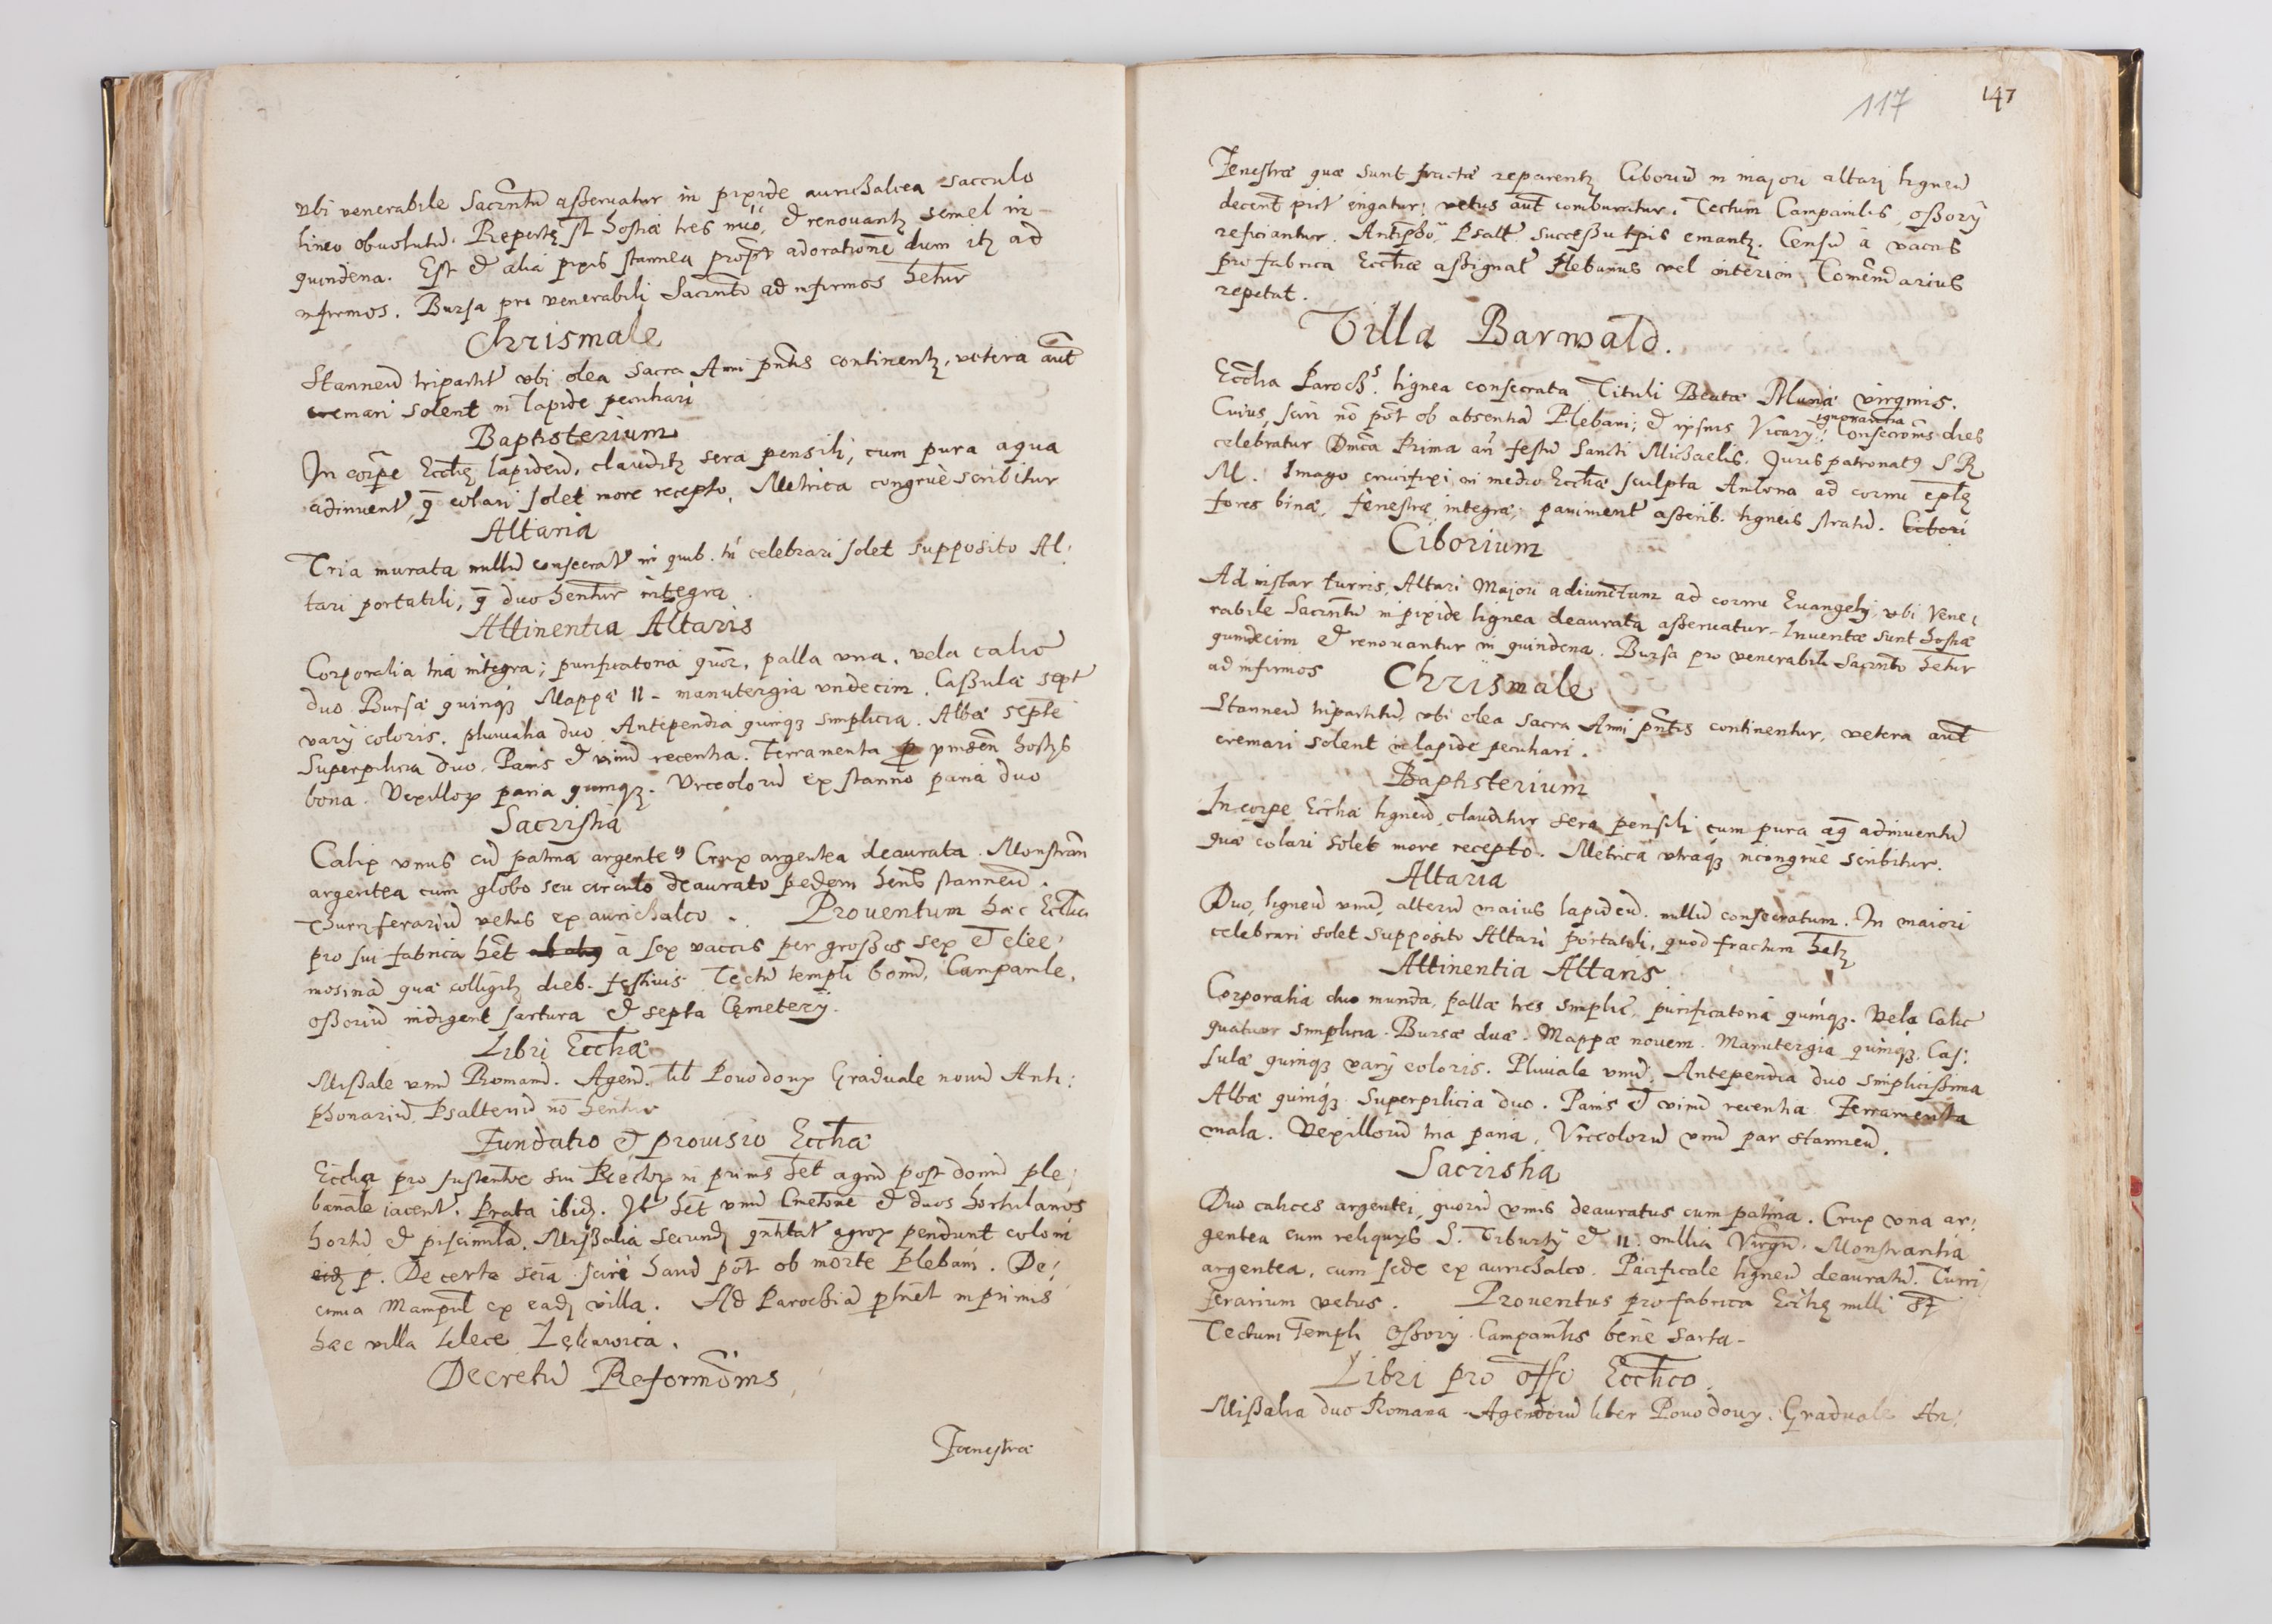 vbi venerabile Sacrm̃tũ asseruatur in pixide aurichalcea sacculo
lineo obuolutũ. Repertę st̃ hostiæ tres nũo, et renouantꝫ semel in
quindena. Est et alia pixis stannea propt adorationẽ dum itꝫ ad
infirmos. Bursa pro venerabili Sacrm̃to ad infirmos hẽtur
Chrismale
Stanneũ tripartit̃ vbi olea Sacra Anni pñtis continentꝫ, vetera aũt
cremari solent in lapide peculiari
Baptisterium
In corpẽ Eccl̃ię lapideũ, clauditꝫ sera pensili, cum pura aqua
adinuent̃, q̃ colari solet more recepto, Metrica congruè scribitur
Altaria
Tria murata nullũ consecrat̃ in quib. tñ celebrari solet supposito Al:
tari portatili, q̃ duo hẽntur integra.
Attinentia Altaris
Corporalia tria integra; purificatoria quõr, palla vna, vela calic̃
duo Bursæ quinqꝫ Mappæ 11 - manutergia vndecim. Cassulæ sept̃
varÿ coloris. pluuialia duo Antependia quinqꝫ simplicia. Albæ septẽ
Superpilicia duo. Panis et vinũ recentia. Ferramenta p̱ pinsen̄ hostÿs
bona. Vexilloꝝ paria quinqꝫ. Vrceolorũ ex stanno paria duo
Sacristia
Calix vnus cũ patina argenteꝰ Crux argentea deaurata. Monstrañ
argentea cum globo seu circulo deaurato pedem hen̄s stanneũ.
Thuriferariũ vetus ex aurichalco. Prouentum hæc Eccl̃ia
pro sui fabrica hẽt ab alijs à sex vaccis per grossos sex et elee:
mosinã quæ colligitꝫ dieb. festiuis Tectũ templi bonũ, Campanile,
ossoriũ indigent sartura et septa Cęmeterÿ.
Libri Eccl̃iæ
Missale vnũ Romanũ. Agend. lib Pouodouꝝ Graduale nouũ Anti:
phonariũ, Psalteriũ nõ hẽntur
Fundatio et prouisio Eccl̃iæ
Eccl̃ia pro sustentãe sui Rectoꝝ in primis hẽt agrũ post domũ ple:
banãle iacent̃. Prata ibid. It̃ hẽt vnũ Cmetonẽ et duos hortulanos
hortũ et piscinulã. Missalia secund. qñtitat̃ agroꝝ pendunt coloni
eid p. De certa seria scire haud põt ob mortẽ plebani. De:
cima Manipul ex eadꝫ villa. Ad Parochiã ptinet inprimis
hæc villa
Decretũ Reformõnis
Fenestræ
117
147
Fenestræ quæ sunt fractæ reparentꝫ Ciboriũ in majori altari ligneũ
decent pict erigatur; vetus aũt comburatur. Tectum Campanilis, ossorÿ
reficiantur. Antipho, Psalt successu tp̃is emantꝫ. Censũ à vaccis
pro fabrica Eccl̃iæ assignat Plebanus vel interim Com̃endarius
repetat.
Villa Barwald.
Eccl̃ia Paroch. lignea consecrata Tituli Beatæ Mariæ virginis.
Cuius, sciri nõ põt ob absentiã Plebani; et ipsius Vicarÿ ignorantia Consecrõnis dies
celebratur Dnĩca Prima añ festũ Sancti Michaelis. Iuris patronatꝰ S R
M. Imago crucifixi in medio Eccl̃iæ sculpta Ambona ad cornu ep̃lę
fores binæ, fenestræ integræ, paviment̃ asserib. ligneis stratũ. Cibori
Ciborium
Ad instar turris, Altari Majori adiunctum ad cornu Euangelÿ, vbi Vene:
rabile Sacrm̃tũ in pixide lignea deaurata asseruatur - Inuentæ sunt hostiæ
quindecim et renouantur in quindena. Bursa pro venerabili Sacrm̃to hẽtur
ad infirmos
Chrismale
Stanneũ tripartitũ, vbi olea sacra Anni pñtis continentur, vetera aũt
cremari solent in lapide peculiari.
Baptisterium
In corpe Eccl̃iæ ligneũ, clauditur sera pensili cum pura aq̃ adinuentũ
quæ colari solet more recepto. Metrica vtraqꝫ incongruè scribitur.
Altaria
Duo, ligneũ vnũ, alterũ maius lapideũ. nullũ consecratum. In maiori
celebrari solet supposito Altari portatili, quod fractum hẽtꝫ
Attinentia Altaris
Corporalia duo munda, pallæ tres simplic, purificatoria quinqꝫ. Vela Calic
quatuor simplicia. Bursæ duæ. Mappæ nouem. Manutergia quinqꝫ. Cas:
sulæ quinqꝫ varÿ coloris. Pluuiale vnũ. Antependia duo simplicissima
Albæ quinqꝫ Superpilicia duo. Panis et vinũ recentia Ferramenta
mala. Vexillorũ tria paria, Vrceolorũ vnũ par stanneũ.
Sacristia
Duo calices argentei, quorũ vnus deauratus cum patina. Crux vna ar:
gentea cum reliquÿs S. Tiburtÿ et 11. millia Virgũ. Monstrantia
argentea, cum sede ex aurichalco. Pacificale ligneũ deauratũ. Turri
ferarium vetus. Prouentus pro fabrica Eccl̃ię nulli st̃
Tectum Templi Ossorÿ Campanilis bene sarta -
Libri pro offo Eccl̃ico.
Missalia duo Romana - Agendorũ liber Pouodouꝝ. Graduale An: